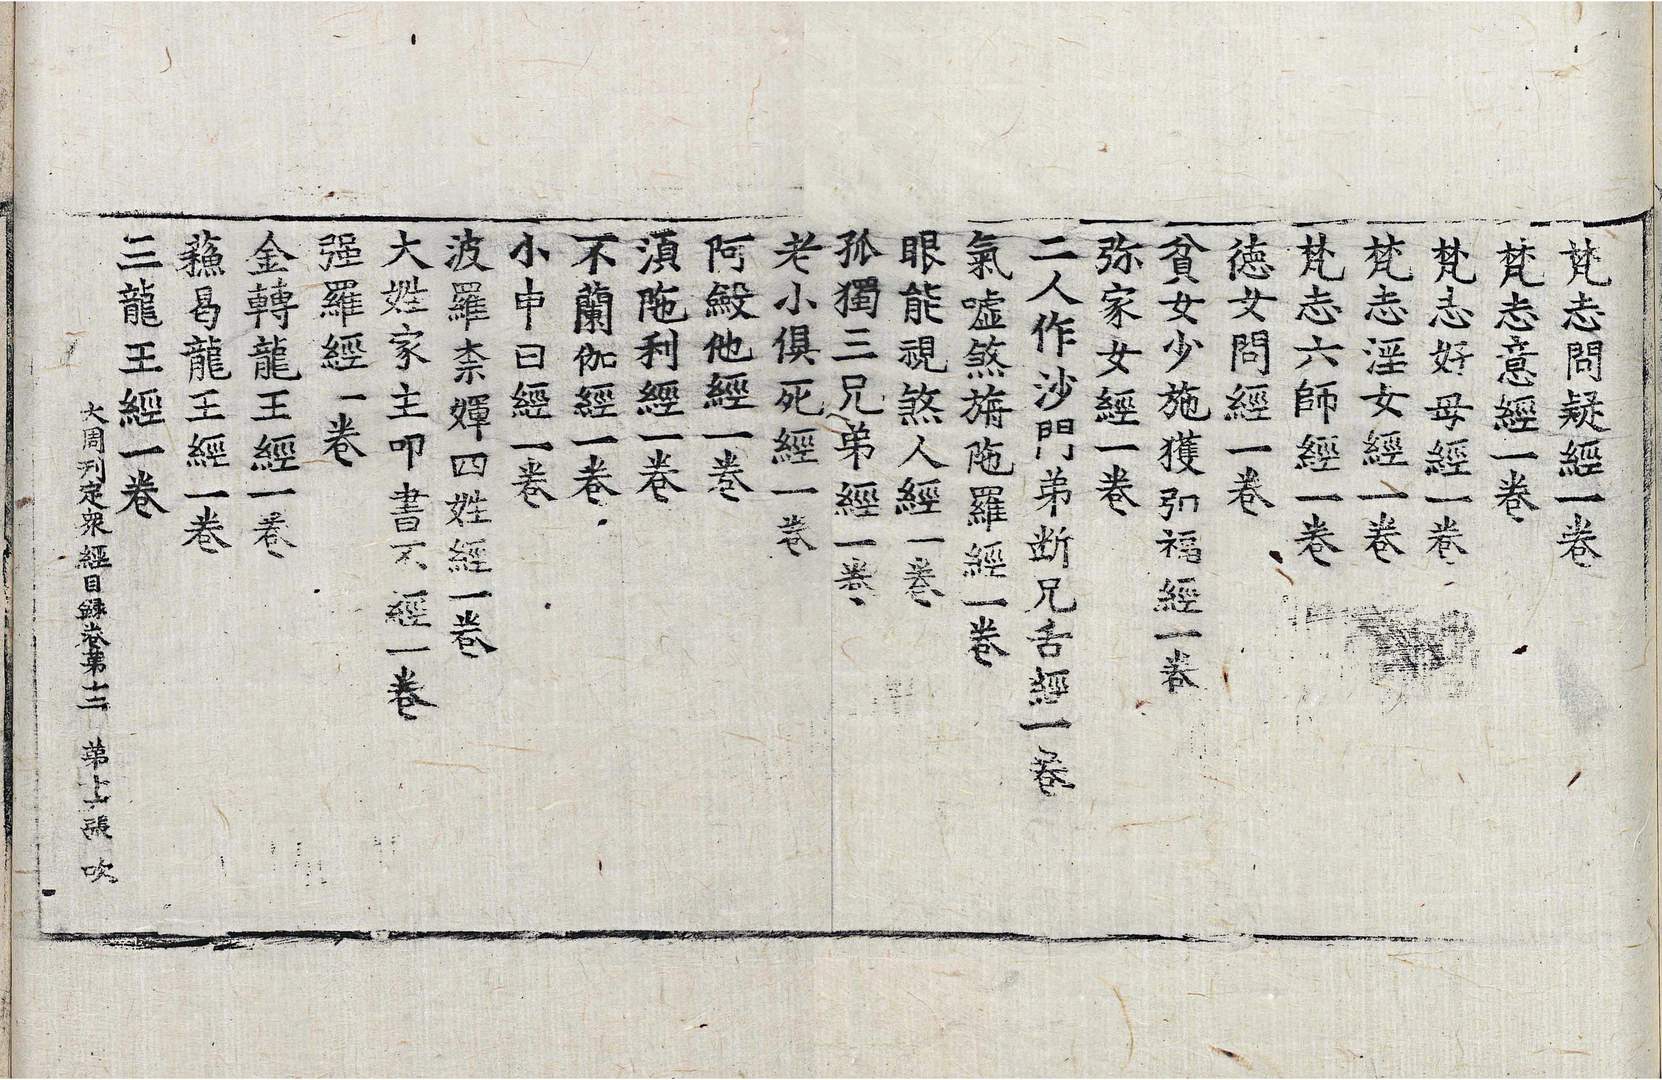 梵志問疑經一卷
梵志意經一卷
梵志好母經一卷
梵志淫女經一卷
梵志六師經一卷
德女問經一卷
貧女少施獲引福經一卷
弥家女經一卷
二人作沙門弟断兄舌經一卷
氣噓煞旃陁羅經一卷
眼能視煞人經一卷
孤獨三兄弟經一卷
老小俱死經一卷
阿鮻他經一卷
湏陁利經一卷
不蘭伽經一卷
小申日經一卷
波羅柰嬋四姓經一卷
大姓家主叩書不經一卷
强羅經一卷
金轉龍王經一卷
蘓曷龍王經一卷
三龍王經一卷
大周刋定衆經目録卷第十三 弟十六張 吹